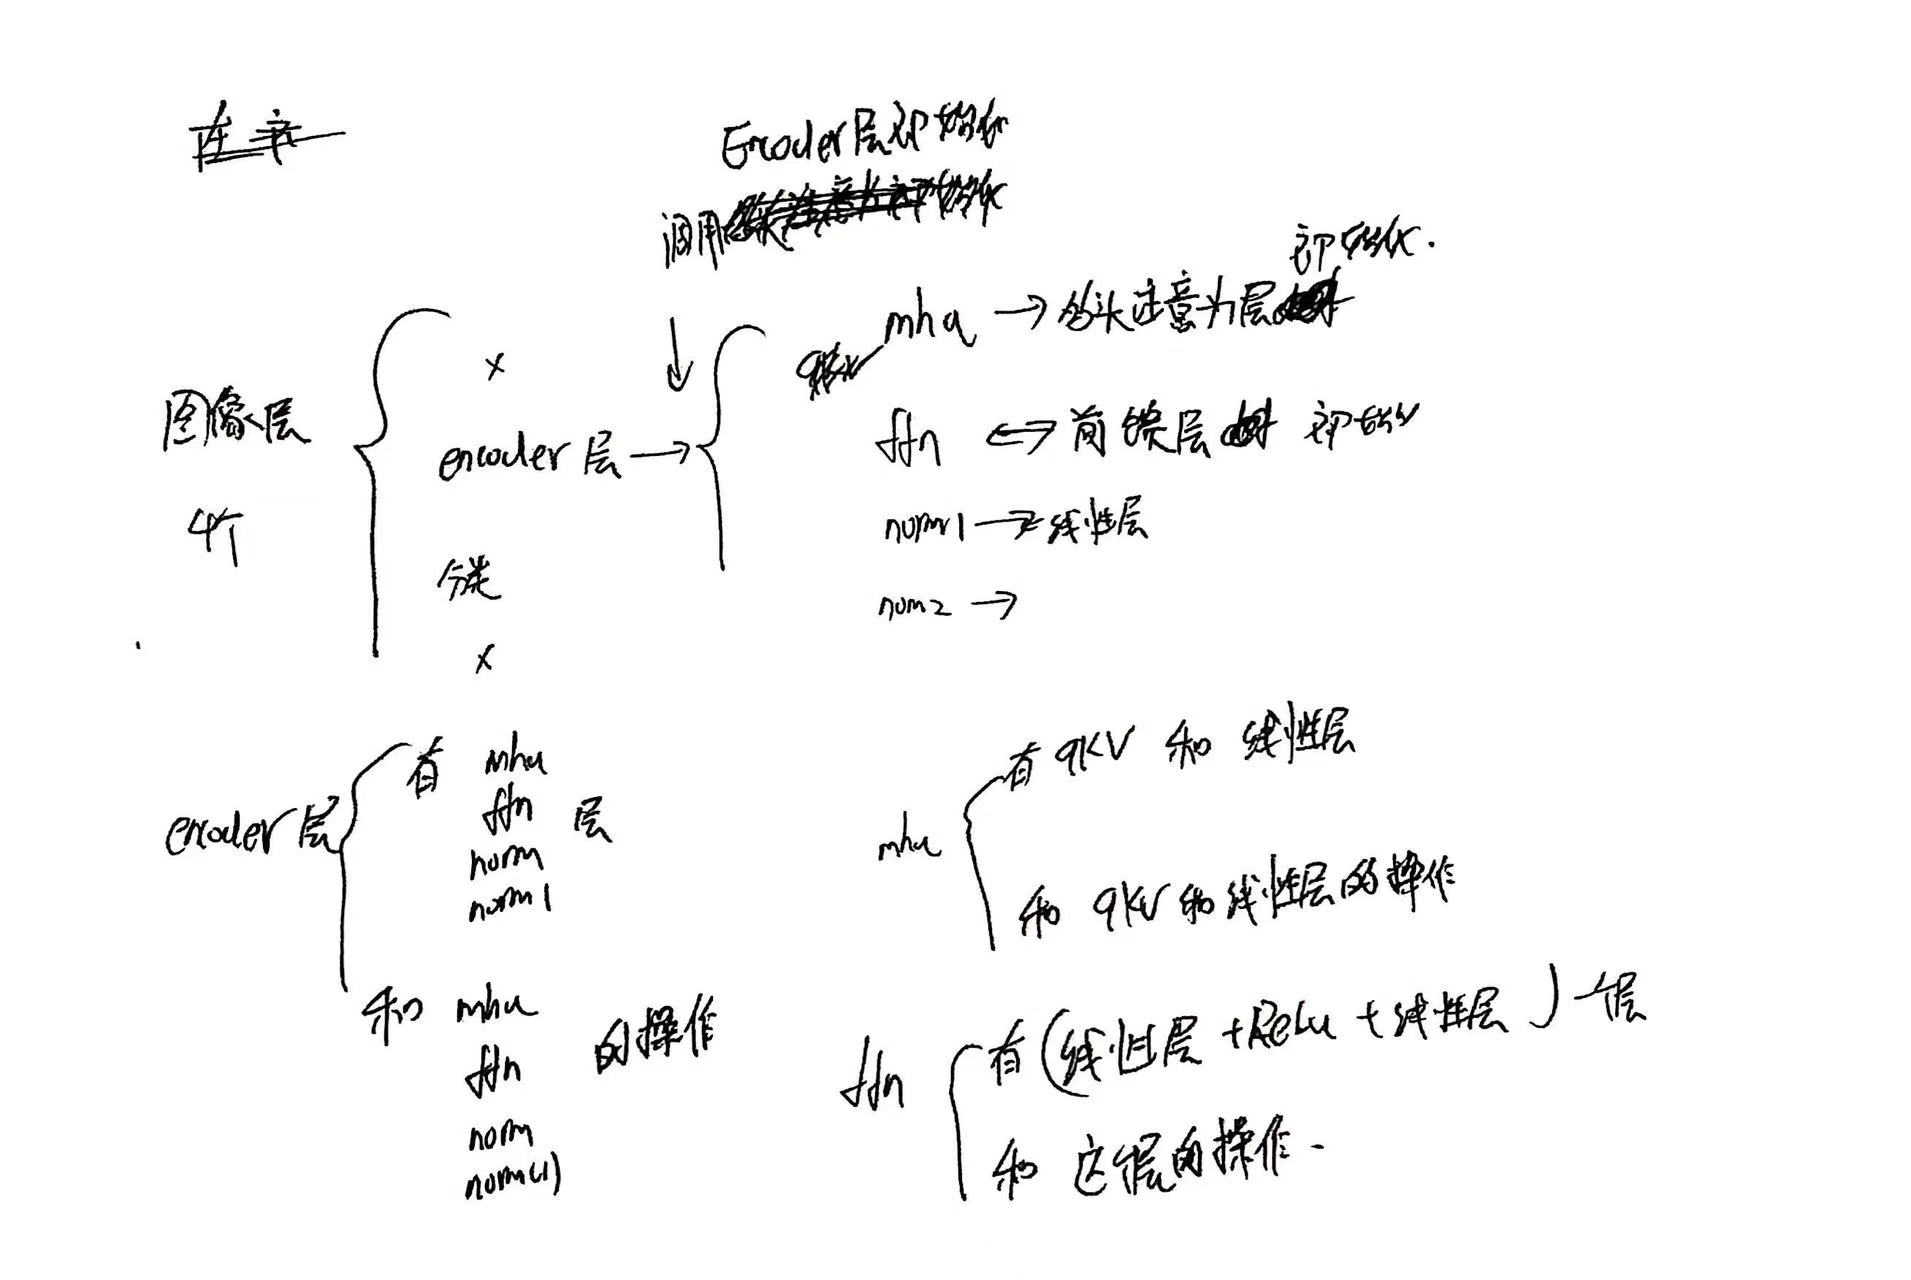 Encoder层初始化
调用
初始化.
mha → 多头注意力层
x
图像层
ffn ↔ 前馈层 初始化
encoder层 →
4个
norm1 → 线性层
分类
norm2 →
x
encoder层
有 mha
ffn 层
norm
norm1
和 mha
ffn 的操作
norm
norm(1)
mha
有qKV 和 线性层
和 qKV和线性层的操作
ffn
有(线性层 + ReLu + 线性层) 一个层
和 这个层的操作.